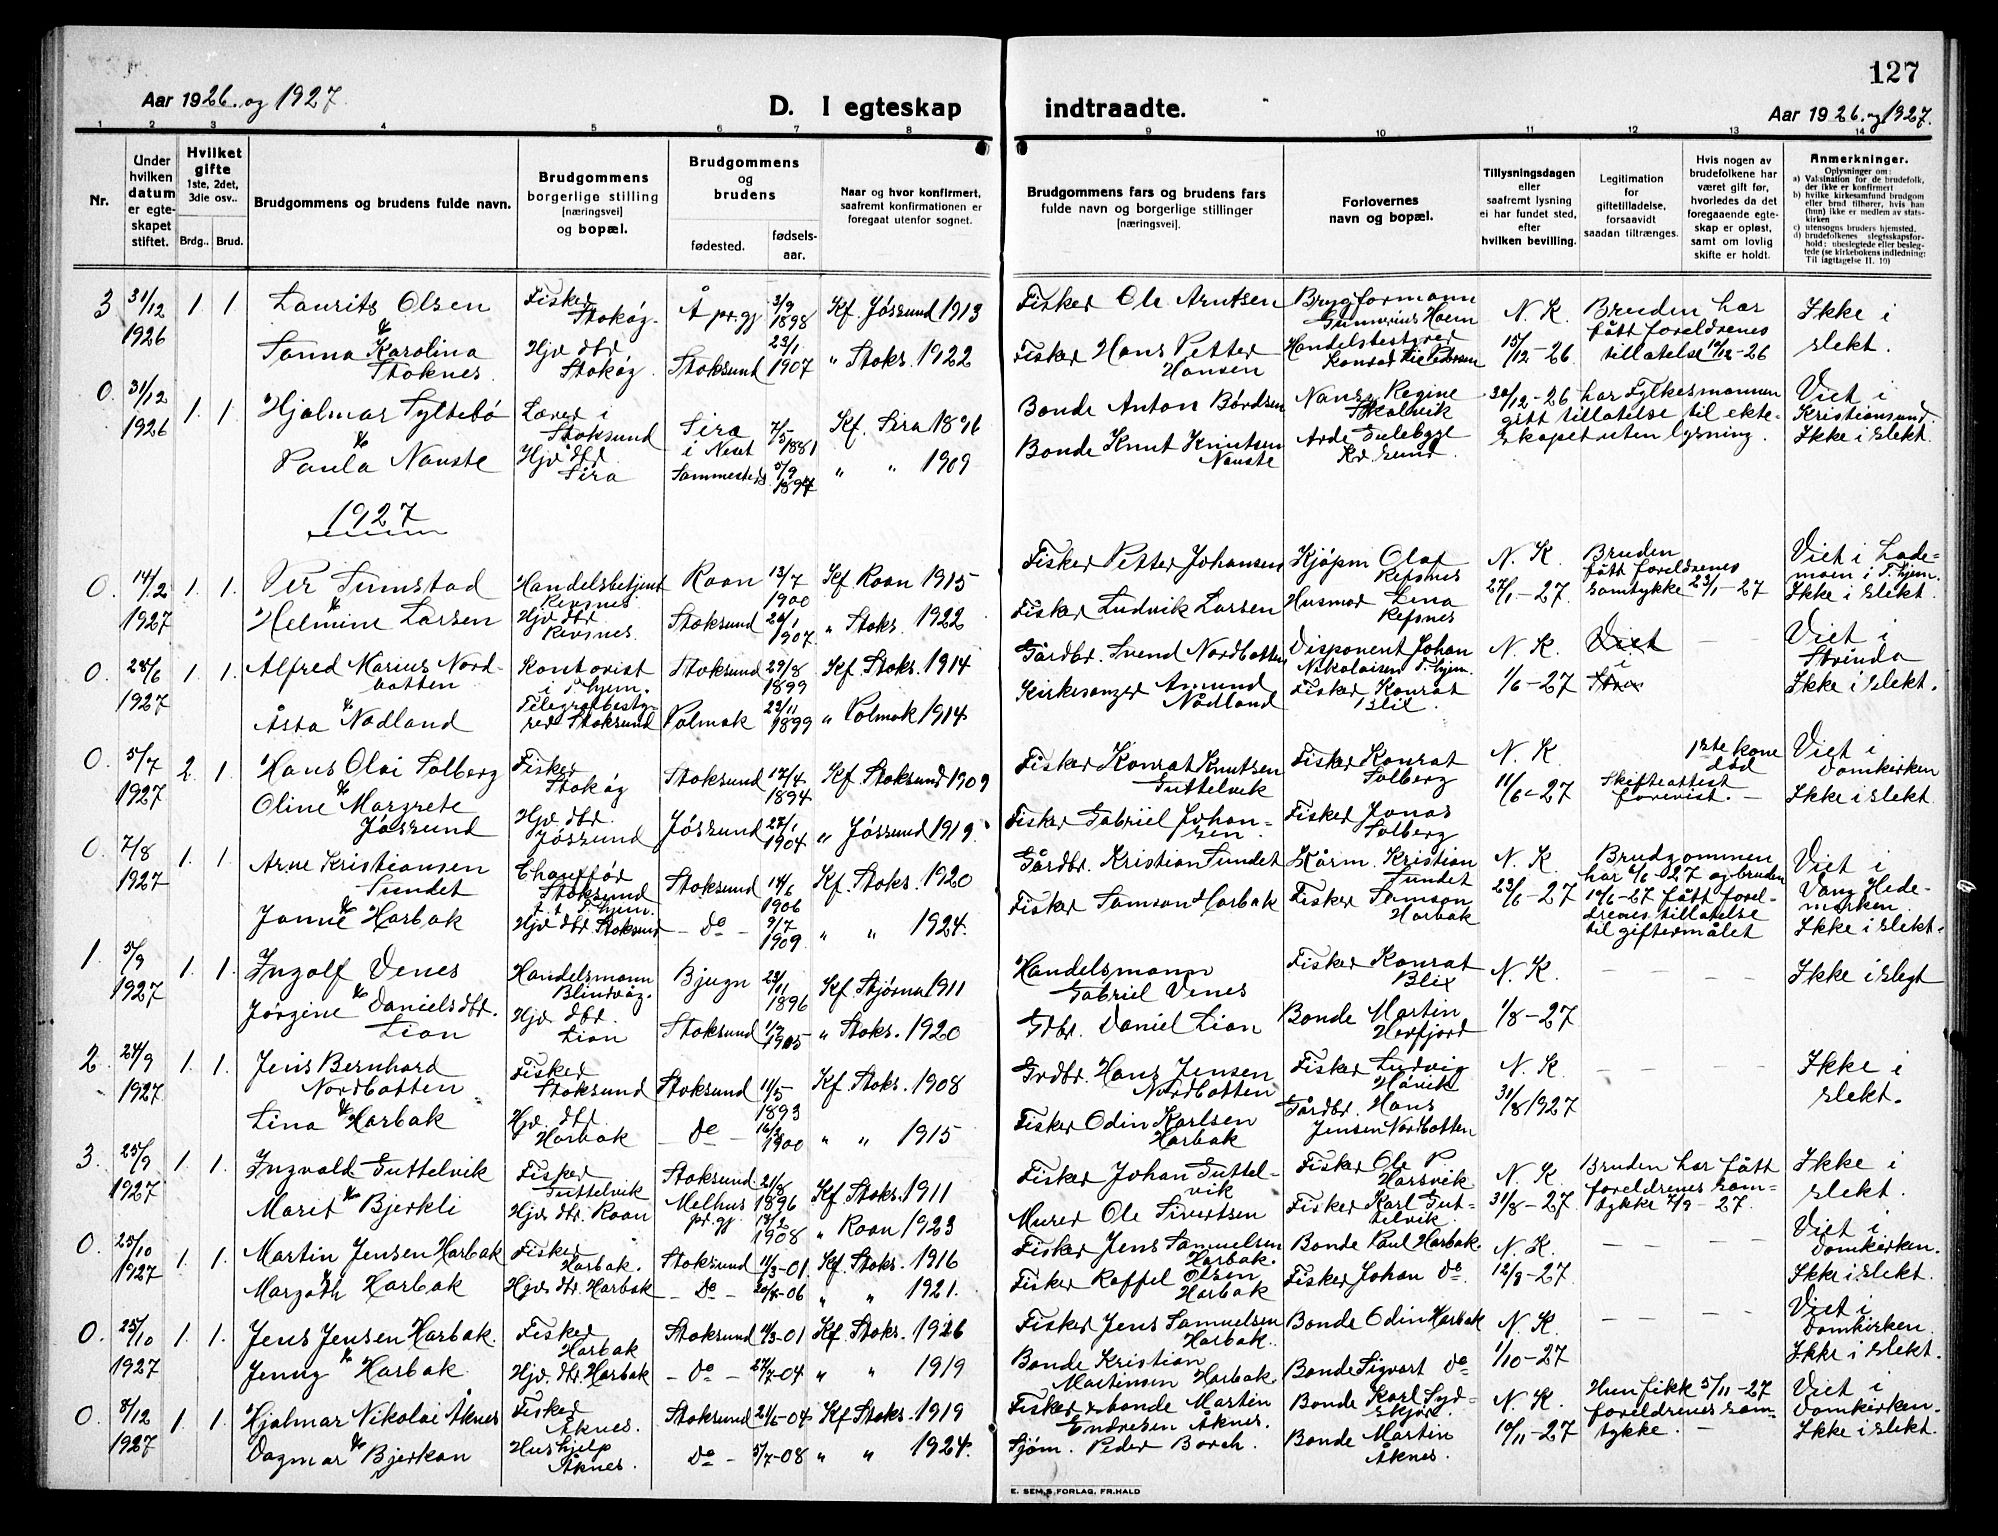 127
Aar 1926. og 1927.
D. I egteskap indtraadte.
Aar 1926. og 1927.
1 2 3 4 5 6 7 8 9 10 11 12 13 14
Nr.
Under hvilken datum er egteskapet stiftet.
Hvilket gifte 1ste, 2det, 3die osv..
Brdg.. Brud.
Brudgommens og brudens fulde navn.
Brudgommens borgerlige stilling [næringsvei] og bopæl.
Brudgommens og brudens
fødested. fødselsaar.
Naar og hvor konfirmert, saafremt konfirmationen er foregaat utenfor sognet.
Brudgommens fars og brudens fars fulde navn og borgerlige stillinger [næringsvei].
Forlovernes navn og bopæl.
Tillysningsdagen eller saafremt lysning ei har fundet sted, efter hvilken bevilling.
Legitimation for giftetilladelse, forsaavidt saadan tiltrænges.
Hvis nogen av brudefolkene har været gift før, hvorledes da det foregaaende egteskap er opløst, samt om lovlig skifte er holdt.
Anmerkninger.
Oplysninger om:
a) Vaksination for de brudefolk, der ikke er konfirmert
b) hvilke kirkesamfund brudgom eller brud tilhører, hvis han (hun) ikke er medlem av statskirken
c) utensogns bruders hjemsted.
d) brudefolkenes slegtsskapsforhold: ubeslegtede eller beslegtede (se kirkebokens indledning: Til iagttagelse II. 10)
3 31/12 1926 1. 1 Laurits Olsen Fisker Stokøy. Å pr.gj. 3/9 1898 Kf. Jøssund 1913 Fisker Ole Arntsen Brygformann Gunnerius Hoem N. K. Bruden har fått foreldrenes tillatelse 10/12-26 Ikke i slekt.
& Sanna Karolina Stoknes. Hjv. dtr. Stokøy. Stoksund 23/1 1907 " Stoks. 1922 Fisker Hans Petter Hansen Handelsbestyrer Konrad Pedersen 15/12-26
0. 31/12 1926 1. 1. Hjalmar Syltebø Lærer i Stoksund Sira i Nesset 7/5 1881 Kf. Sira 1896 Bonde Anton Bårdsen Nansy Regine Skalvik 30/12-26 har Fylkesmannen gitt tillatelse til ekteskapet uten lysning. Viet i Kristiansund. Ikke i slekt.
& Paula Nauste Hjv. dtr. Sira Sammesteds 5/9 1897 " " 1909 Bonde Knut Knutsen Nauste Arde Gulebygt Kr. sund.
1927
0. 14/2 1927 1. 1. Per Sumstad Handelsbetjent Revsnes Roan 13/7 1900 Kf. Roan 1915 Fisker Petter Johansen Kjøpm Olaf Refsnes N. K. 27/1-27. Bruden fått foreldrenes samtykke 23/1-27 Viet i Lademoen i T.hjem. Ikke i slekt.
& Helmine Larsen Hjv. dtr. Revsnes. Stoksund 20/1 1907. " Stoks. 1922 Fisker Ludvik Larsen Husmor Lena Refsnes
0. 28/6 1927 1. 1. Alfred Marius Nordbotten Kontorist i T.hjem. Stoksund 29/8 1899 Kf. Stoks. 1914 Gårdbr. Svend Nordbotten Disponent Johan Nikolaisen T.hjem. N. K. 1/6-27 Viet i Strin — — Viet i Strinda Ikke i slekt.
& Åsta Nodland Telegrafbestyrer Stoksund Polmak 23/11 1899 " Polmak 1914 Kirkesanger Amund Nodland Fisker Konrat Blix.
0. 5/7 1927 2. 1. Hans Olai Solberg Fisker Stokøy Stoksund 17/4 1894 Kf. Stoksund 1909 Fisker Konrat Knutsen Guttelvik Fisker Konrat Solberg N. K. 11/6-27 Skifteattest forevist. — 1ste kone død Viet i Domkirken Ikke i slekt.
& Oline Margrete Jøssund Hjv. dtr. Jøssund Jøssund 27/1 1904 " Jøssund 1919. Fisker Gabriel Johansen. Fisker Jonas Solberg
0. 7/8 1927 1. 1. Arne Kristiansen Sundet Chauffør Stoksund f. t. T.hjem. Stoksund 14/6 1906 Kf. Stoks. 1920 Gårdbr. Kristian Sundet Kårm. Kristian Sundet N. K. 23/6-27 Brudgommen har 6/6-27 og bruden 10/6-27 fått foreldrenes tillatelse til giftermålet Viet i Vang Hedemarken. Ikke i slekt.
& Janne Harbak Hjv. dtr. Stoksund — Do — 9/7 1909. " " 1924. Fisker Samson Harbak Fisker Samson Harbak
1. 5/9 1927 1. 1. Ingolf Venes Handelsmann Blindvåg. Bjugn 23/11 1896 Kf. Stjørna 1911 Handelsmann Gabriel Venes Fisker Konrat Blix N. K. 1/8-27 — — Ikke i slegt
& Jørgine Danielsdtr. Lion Hjv. dtr. Lion Stoksund 1/2 1905 " Stoks. 1920 Grdbr. Daniel Lion Bonde Martin Herfjord
2. 24/9 1927 1. 1. Jens Bernhard Nordbotten Fisker Stoksund Stoksund 11/5 1893 Kf. Stoks. 1908 Grdbr. Hans Jensen Nordbotten Fisker Ludvig Håvik N. K. 31/8 1927 — — Ikke i slekt.
& Lina Harbak Hjv. dtr. Harbak — Do — 16/2 1900 " " 1915 Fisker Odin Karlsen Harbak Gårdbr. Hans Jensen Nordbotten
3. 25/9 1927 1. 1. Ingvald Guttelvik Fisker Guttelvik Stoksund 21/8 1896 Kf. Stoks. 1911 Fisker Johan Guttelvik Fisker Ole P Harsvik N. K. 31/8-27 Bruden har fått foreldrenes samtykke 7/9-27. Ikke i slekt.
& Marit Bjerkli Hjv. dtr. Roan Melhus pr. gj. 13/2 1908 " Roan 1923 Murer Ole Sivertsen Fisker Karl Guttelvik.
0. 25/10 1927 1. 1. Martin Jensen Harbak Fisker Harbak. Stoksund 11/3-01. Kf. Stoks. 1916 Fisker Jens Samuelsen Harbak. Bonde Paul Harbak. N. K. 12/9-27. — — Viet i Domkirken. Ikke i slekt.
& Margoth Harbak Hjv. dtr. Harbak — Do — 20/8-06 " " 1921. Fisker Raffel Olsen Harbak Fisker Johan do.
0. 25/10 1927 1. 1. Jens Jensen Harbak. Fisker Harbak Stoksund 11/3-01 Kf. Stoks. 1916 Fisker Jens Samuelsen Harbak. Bonde Odin Harbak N. K. 1/10-27 — — Viet i Domkirken. Ikke i slekt.
& Jenny Harbak. Hjv. dtr. Harbak — Do — 27/7-04 " " 1919 Bonde Kristian Martinsen Harbak. Bonde Sigvart do
0. 8/12 1927 1. 1. Hjalmar Nikolai Åknes Fisker Åknes. Stoksund 21/5-04 Kf. Stoks. 1919 Fisker & bonde Martin Endresen Åknes. Bonde Karl Sydskjør. N. K. 10/11-27 Hun fikk 5/11-27 foreldrenes samtykke. — Viet i Domkirken. Ikke i slekt.
& Dagmar Bjerkan Hushjelp Åknes. Do — 5/7-08 " " 1924. Sjøm. Peder Borch. Bonde Martin Åknes.
E. SEM,S FORLAG, FR.HALD